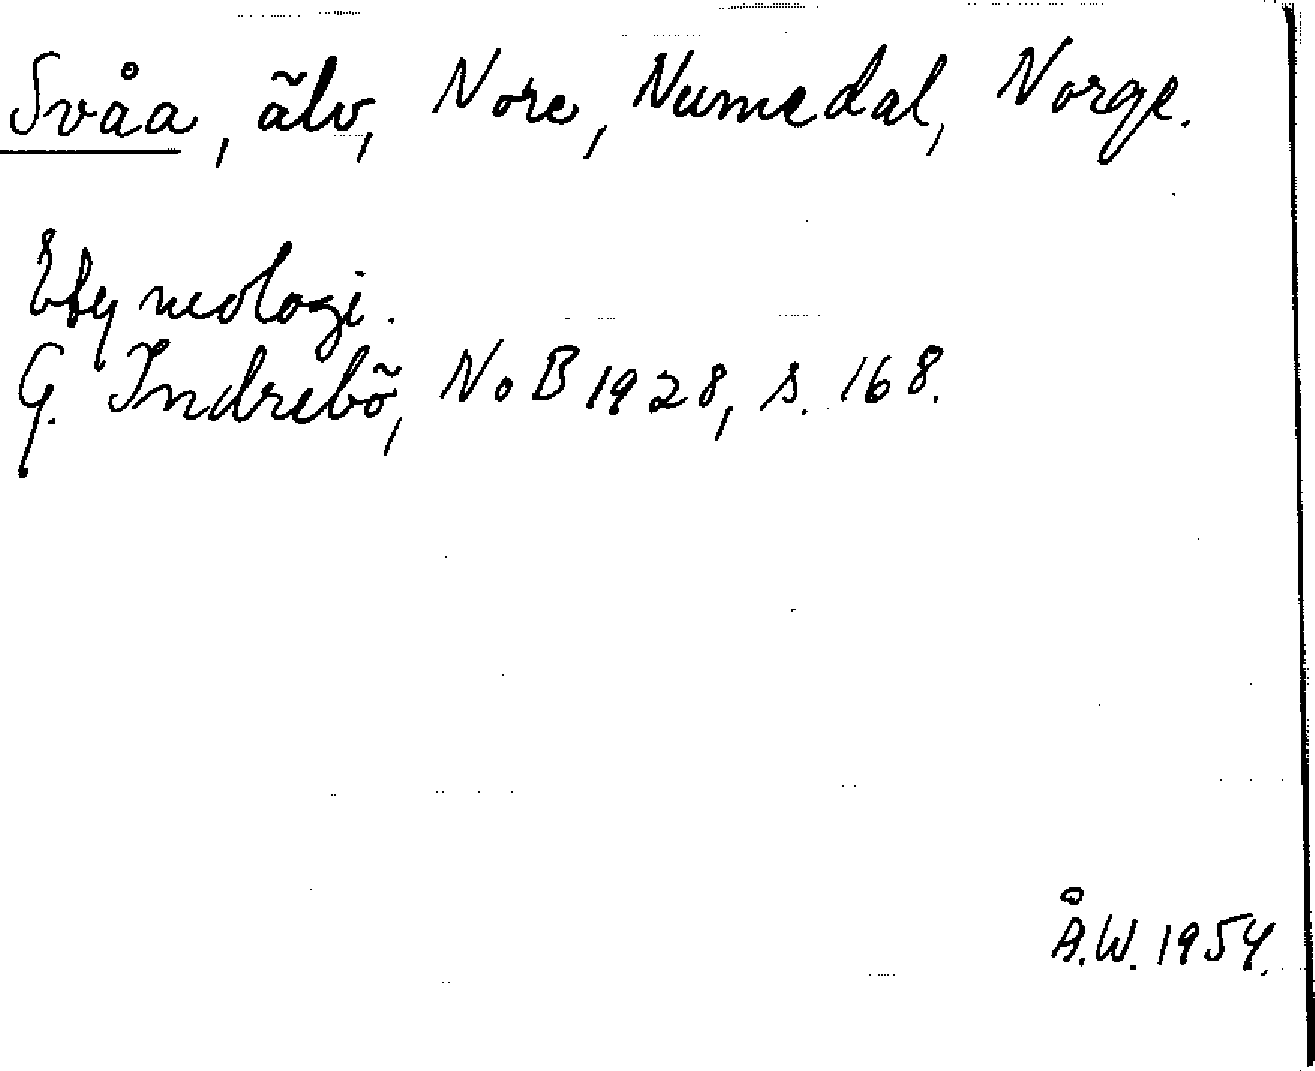 Svåa, älv, Nore, Numedal, Norge.
Etymologi.
G. Indrebö, NoB 1928, s. 168.
Å.W. 1954.